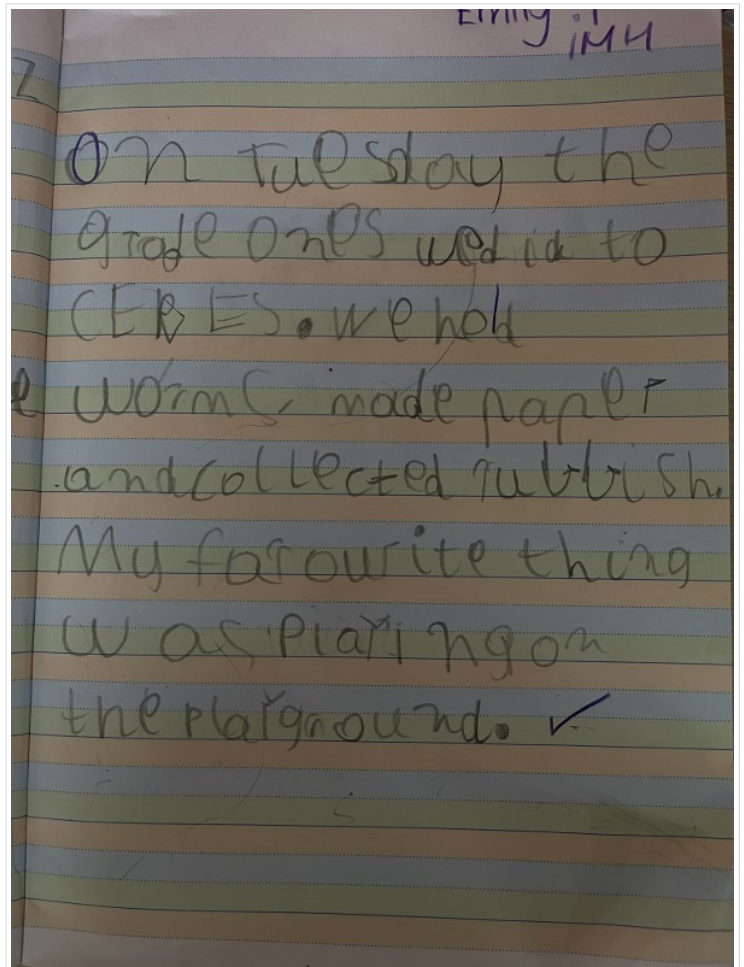 Emily.T
1M4
On Tuesday the
grade ones to
CERES. we held
worms, made paper
and collected rubbish.
My favourite thing
was playing on
the playground.